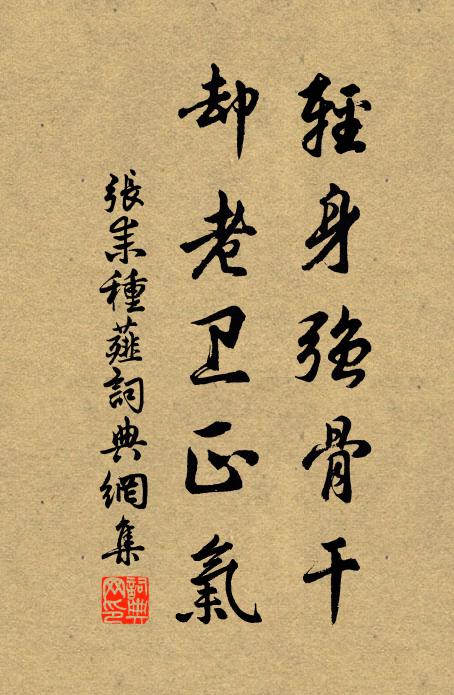 輕身強骨干
却老卫正氣
張耒種薤詞典網集
詞典网印